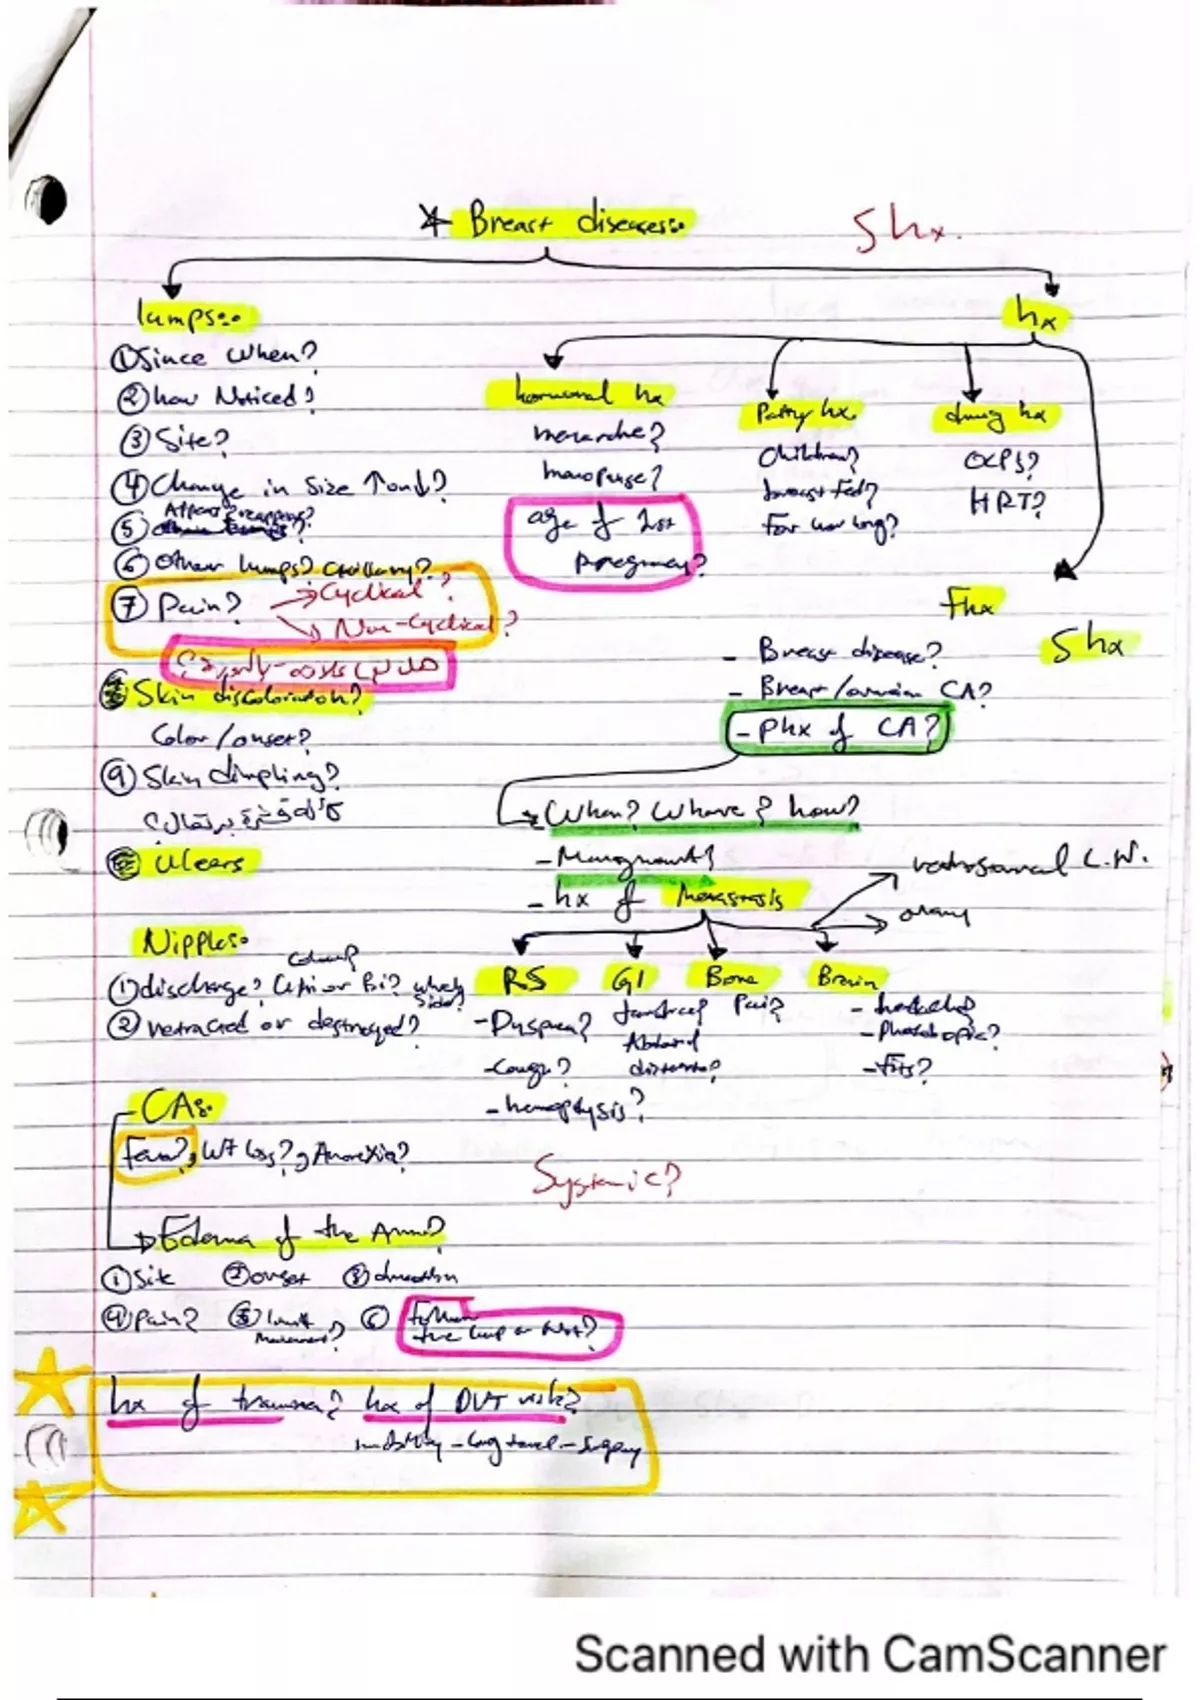 Breast diseases:
Shx.
lumps:
① Since when?
② how Noticed?
③ Site?
④ Change in Size ↑ or ↓?
⑤
⑥ Other lumps? axillary?
⑦ Pain? → Cyclical?
→ Non-Cyclical?
هل لها علاقة بالدورة؟
Skin discoloration?
Color / onset?
⑨ Skin dimpling?
كأنه قشرة برتقال؟
Ulcers
Nipples:
Colour?
① discharge? Uni or Bi? which side?
② retracted or destroyed?
CA:
Fever?, Wt loss?, Anorexia?
→ Edema of the Arm?
① Site ② onset ③ duration
④ pain? ⑤ limit movement? ⑥
the lump or not?
hx of trauma? hx of DVT risk?
long travel - surgery
hx
hormonal hx
menarche?
menopause?
age of 1st
pregnancy?
hx.
Children?
breast fed?
For how long?
drug hx
OCPs?
HRT?
Fhx
Shx
- Breast disease?
- Breast/ovarian CA?
- Phx of CA?
→ When? Where? how?
- Management?
- hx of Metastasis
ovary
RS
- Dyspnea?
- Cough?
- hemoptysis?
GI
Jaundice?
Abdominal
distension?
Bone
Pain?
Brain
- headache?
- Photobopic?
- Fits?
Systemic?
Scanned with CamScanner